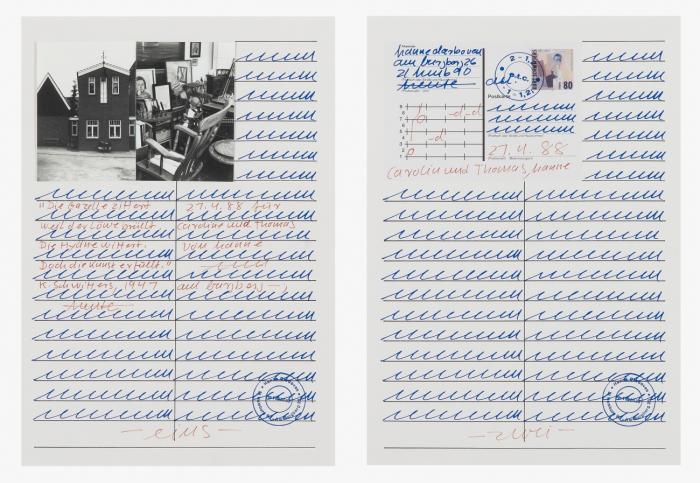 "Die Gazelle zittert
weil der Löwe brüllt
Die Hyäne wittert.
Doch die Kunst erfüllt."
K. Schwitters, 1947
heute
27.4.88 für
Caroline und Thomas
von hanne
am burgberg —,
– eins –
hanne darboven
am burgberg 26
21 hmb 90
heute
Postkarte
80
27.4.88
Carolin und Thomas, hanne
– zwei –